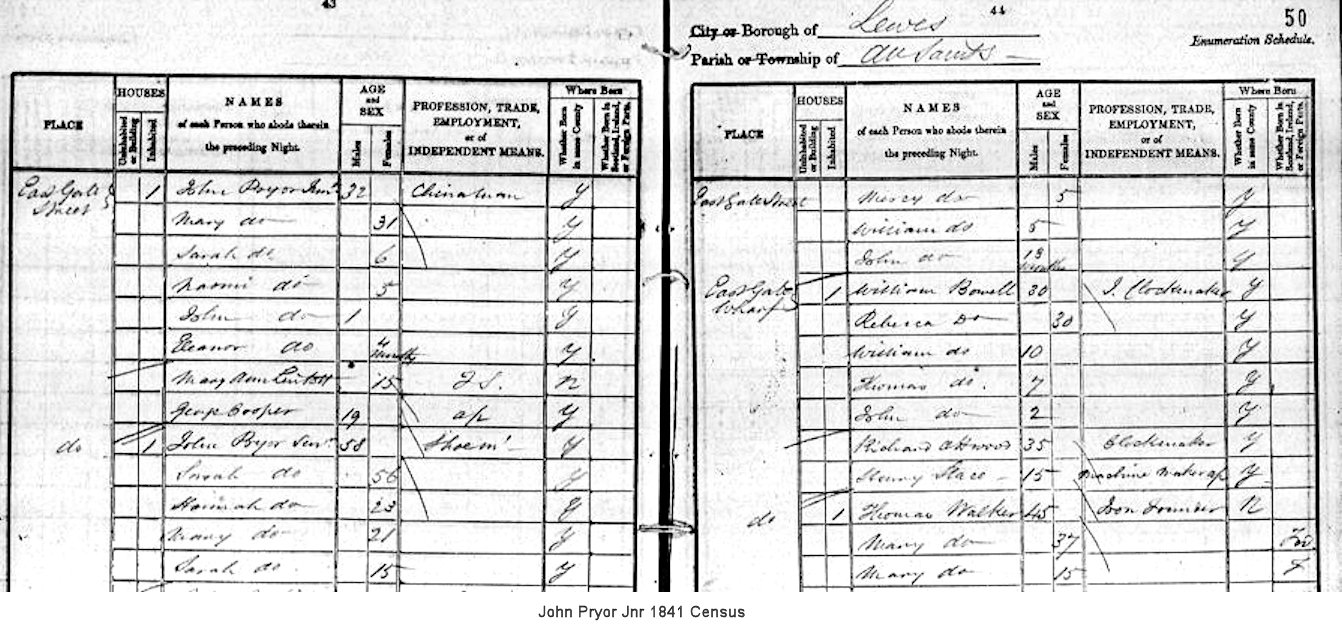 43
PLACE
HOUSES
Uninhabited or Building
Inhabited
NAMES
of each Person who abode therein
the preceding Night.
AGE
and
SEX
Males
Females
PROFESSION, TRADE,
EMPLOYMENT,
or of
INDEPENDENT MEANS.
Where Born
Whether Born in same County
Whether Born in Scotland, Ireland, or Foreign Parts.
East Gate Street 1 John Pryor Junr 32 Chinaman Y
Mary do 31 Y
Sarah do 6 Y
Naomi do 5 Y
John do 1 Y
Eleanor do 4 Months Y
Mary Ann 15 F.S. N
George Cooper 19 ap Y
do 1 John Pryor Senr 58 Shoem Y
Sarah do 56 Y
Hannah do 23 Y
Mary do 21 Y
Sarah do 15 Y
44
50
City or Borough of Lewes
Enumeration Schedule.
Parish or Township of All Saints
PLACE
HOUSES
Uninhabited or Building
Inhabited
NAMES
of each Person who abode therein
the preceding Night.
AGE
and
SEX
Males
Females
PROFESSION, TRADE,
EMPLOYMENT,
or of
INDEPENDENT MEANS.
Where Born
Whether Born in same County
Whether Born in Scotland, Ireland, or Foreign Parts.
East Gate Street Mercy do 5 Y
William do 5 Y
John do 13 Months Y
East Gate Wharf 1 William Bonell 30 J. Clockmaker Y
Rebecca Do 30 Y
William do 10 Y
Thomas do 7 Y
John do 2 Y
Richard Attwood 35 Clockmaker Y
Henry Stace 15 Machine Maker ap Y
do 1 Thomas Walker 45 Iron Founder N
Mary do 37
Mary do 15 F
John Pryor Jnr 1841 Census